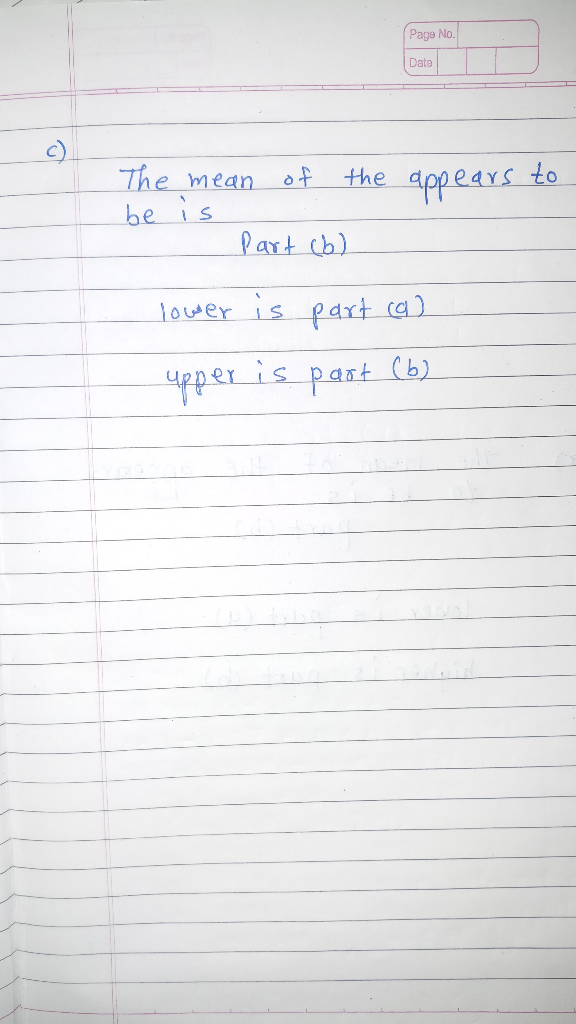 Page No.
Date
c)
The mean of the appears to
be is
Part (b)
lower is part (a)
upper is part (b)